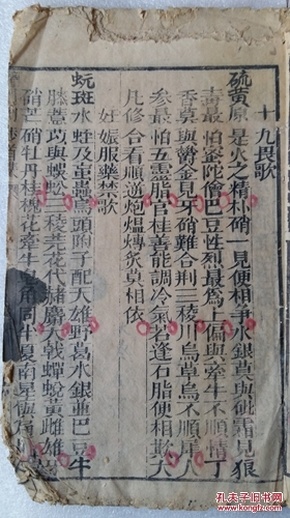 十九畏歌
硫黃原是火之精朴硝一見便相爭水銀莫與砒霜見狼
毒最怕密陀僧巴豆性烈最爲上偏與牽牛不順情丁
香莫與欝金見牙硝難合荆三稜川烏草烏不順犀人
參最怕五靈脂官桂善能調冷氣若逢石脂便相欺大
凡修合看順逆炮爁煿炙莫相依
妊娠服藥禁歌
蚖斑水蛭及虻蟲烏頭附子配天雄野葛水銀並巴豆牛
膝薏苡與蜈蚣三稜芫花代赭麝大戟蟬蛻黃雌雄
硝芒硝牡丹桂槐花牽牛皂角同半夏南星與
孔夫子旧书网